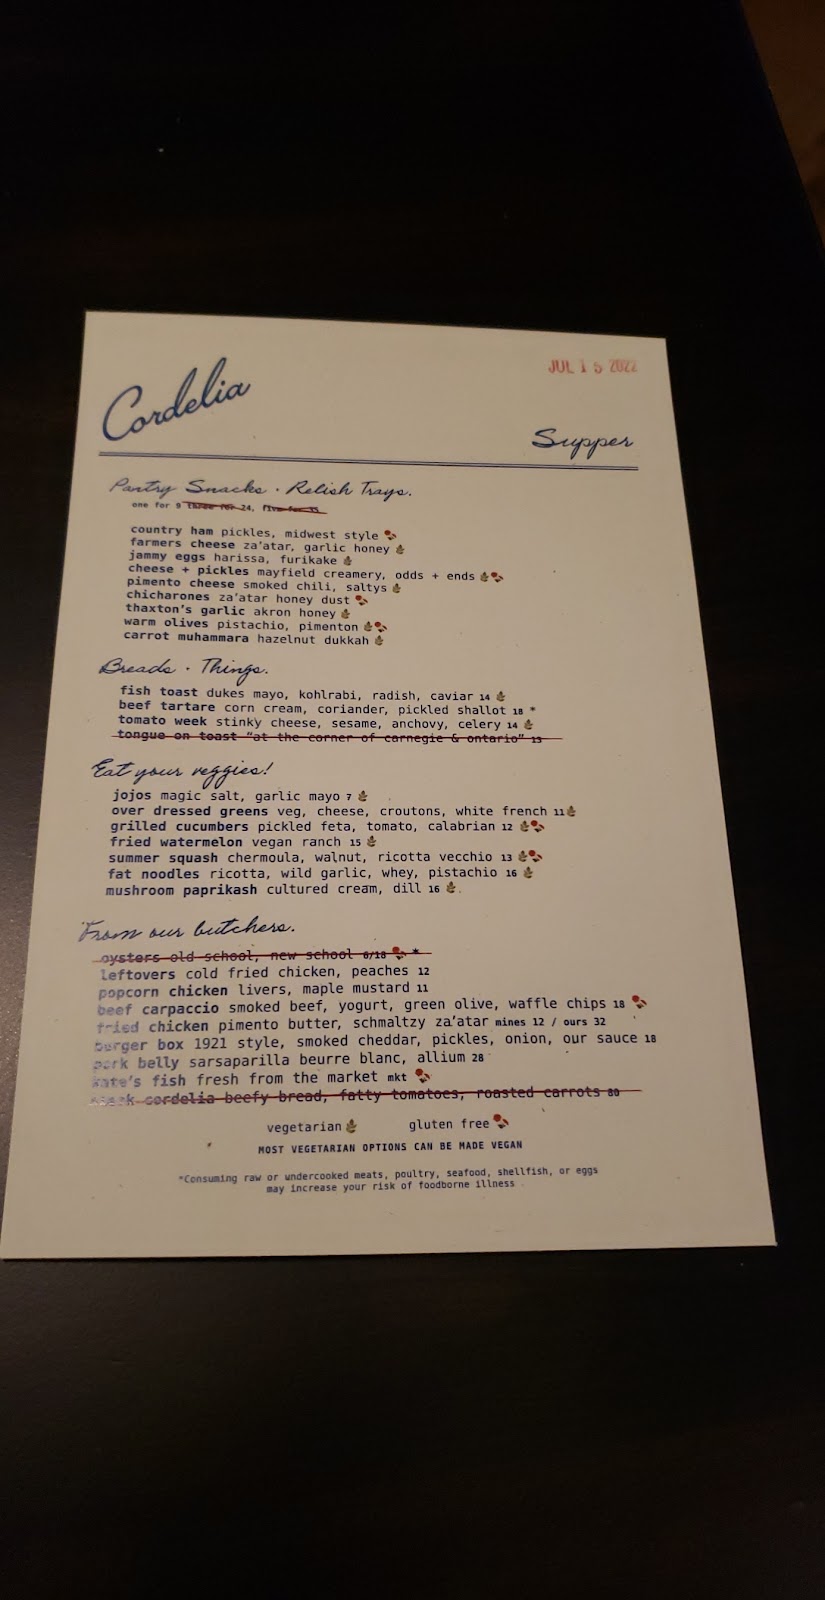 Cordelia
JUL 15 2022
Supper
Pantry Snacks · Relish Trays.
one for 9 three for 24, five for 35
country ham pickles, midwest style
farmers cheese za'atar, garlic honey
jammy eggs harissa, furikake
cheese + pickles mayfield creamery, odds + ends
pimento cheese smoked chili, saltys
chicharones za'atar honey dust
thaxton's garlic akron honey
warm olives pistachio, pimenton
carrot muhammara hazelnut dukkah
Breads · Things.
fish toast dukes mayo, kohlrabi, radish, caviar 14
beef tartare corn cream, coriander, pickled shallot 18 *
tomato week stinky cheese, sesame, anchovy, celery 14
tongue on toast "at the corner of carnegie & ontario" 13
Eat your veggies!
jojos magic salt, garlic mayo 7
over dressed greens veg, cheese, croutons, white french 11
grilled cucumbers pickled feta, tomato, calabrian 12
fried watermelon vegan ranch 15
summer squash chermoula, walnut, ricotta vecchio 13
fat noodles ricotta, wild garlic, whey, pistachio 16
mushroom paprikash cultured cream, dill 16
From our butchers.
oysters old school, new school *
leftovers cold fried chicken, peaches 12
popcorn chicken livers, maple mustard 11
beef carpaccio smoked beef, yogurt, green olive, waffle chips 18
fried chicken pimento butter, schmaltzy za'atar mines 12 / ours 32
burger box 1921 style, smoked cheddar, pickles, onion, our sauce 18
pork belly sarsaparilla beurre blanc, allium 28
kate's fish fresh from the market mkt
cordelia beefy bread, fatty tomatoes, roasted carrots 80
vegetarian gluten free
MOST VEGETARIAN OPTIONS CAN BE MADE VEGAN
*Consuming raw or undercooked meats, poultry, seafood, shellfish, or eggs
may increase your risk of foodborne illness